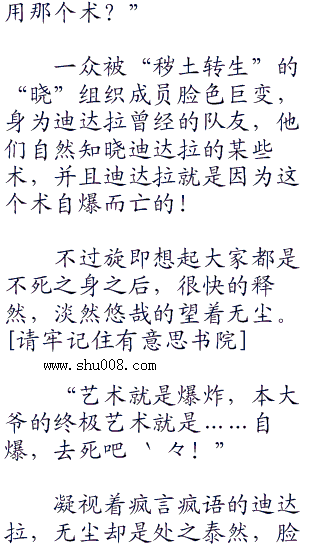 用那个术？”
一众被“秽土转生”的
“晓”组织成员脸色巨变，
身为迪达拉曾经的队友，他
们自然知晓迪达拉的某些
术，并且迪达拉就是因为这
个术自爆而亡的！
不过旋即想起大家都是
不死之身之后，很快的释
然，淡然悠哉的望着无尘。
[请牢记住有意思书院]
www.shu008.com
“艺术就是爆炸，本大
爷的终极艺术就是……自
爆，去死吧 ‵ 々！”
凝视着疯言疯语的迪达
拉，无尘却是处之泰然，脸